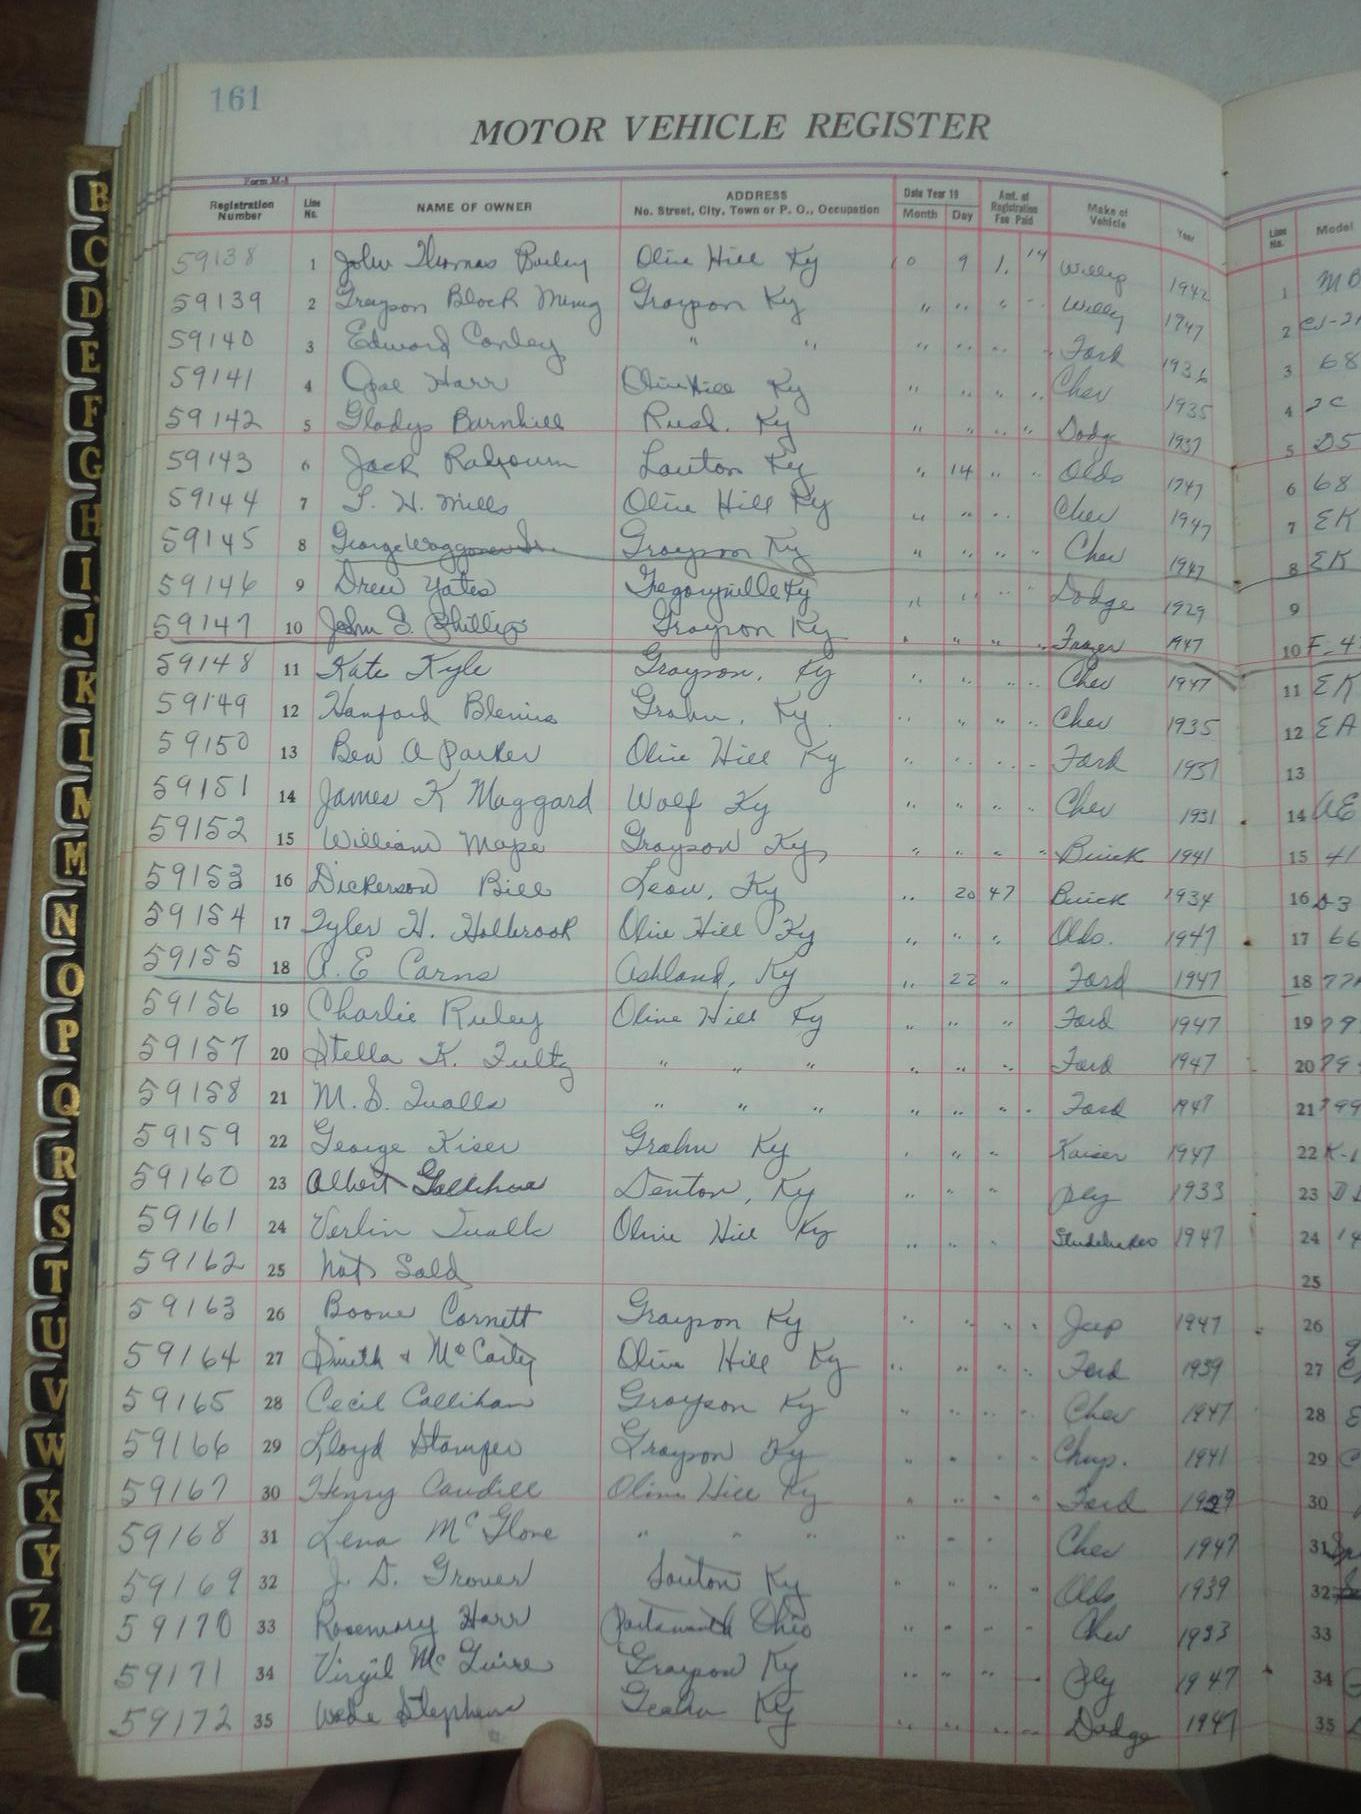 161
MOTOR VEHICLE REGISTER
Form M-4
Registration Number Line No. NAME OF OWNER ADDRESS No. Street, City, Town or P. O., Occupation Date Year 19 Month Day Amt. of Registration Fee Paid Make of Vehicle Year Line No. Model
59138 1 John Thomas Bailey Olive Hill Ky 10 9 1. 14 Willys 1942 1
59139 2 Grayson Block Mining Grayson Ky " " " " Willys 1947 2 CJ-2A
59140 3 Edward Conley " " " " " " Ford 1936 3 68
59141 4 Opal Harr Olive Hill Ky " " " " Chev 1935 4
59142 5 Gladys Barnhill Rush, Ky " " " " Dodge 1937 5 D5
59143 6 Jack Lawton Ky " 14 " " Olds 1947 6 68
59144 7 T. H. Mills Olive Hill Ky " " " " Chev 1947 7 EK
59145 8 George Waggoner Sr. Grayson Ky " " " " Chev 1947 8 EK
59146 9 Drew Yates Gregoryville Ky " " " " Dodge 1929 9
59147 10 John S. Phillips Grayson Ky " " " " Frazer 1947 10 F-4
59148 11 Kate Kyle Grayson, Ky " " " " Chev 1947 11 EK
59149 12 Hanford Blevins Grahn, Ky " " " " Chev 1935 12 EA
59150 13 Ben A Parker Olive Hill Ky " " " " Ford 1937 13
59151 14 James K Maggard Wolf Ky " " " " Chev 1931 14 AE
59152 15 William Mape Grayson Ky " " " " Buick 1941 15 41
59153 16 Dickerson Bill Leon, Ky " 20 47 Buick 1934 16
59154 17 Tyler H. Holbrook Olive Hill Ky " " " Olds. 1947 17 66
59155 18 A. E Carns Ashland, Ky " 22 " Ford 1947 18
59156 19 Charlie Ruley Olive Hill Ky " " " Ford 1947 19 79
59157 20 Stella K. Fultz " " " " " " Ford 1947 20 79
59158 21 M. S. Qualls " " " " " " Ford 1947 21 799
59159 22 George Kiser Grahn Ky " " " Kaiser 1947 22 K-1
59160 23 Albert Gallihue Denton, Ky " " " Ply 1933 23
59161 24 Verlin Qualls Olive Hill Ky " " " Studebaker 1947 24 14
59162 25 Not Sold 25
59163 26 Boone Cornett Grayson Ky " " " " Jeep 1947 26
59164 27 Smith & McCarty Olive Hill Ky " " " " Ford 1939 27
59165 28 Cecil Callihan Grayson Ky " " " " Chev 1947 28
59166 29 Lloyd Stamper Grayson Ky " " " " 1941 29
59167 30 Henry Caudill Olive Hill Ky " " " " Ford 30
59168 31 Lena McGlone " " " " " " Chev 1947 31
59169 32 J. D. Grover Lawton Ky " " " " Olds 1939 32
59170 33 Rosemary Harr Portsmouth Ohio " " " " Chev 1933 33
59171 34 Virgil McGuire Grayson Ky " " " Ply 1947 34
59172 35 Wade Stephens Grahn Ky " " " " Dodge 1947 35
B
C
D
E
F
G
H
I
J
K
L
M
M
N
O
P
Q
R
S
T
U
V
W
X
Y
Z